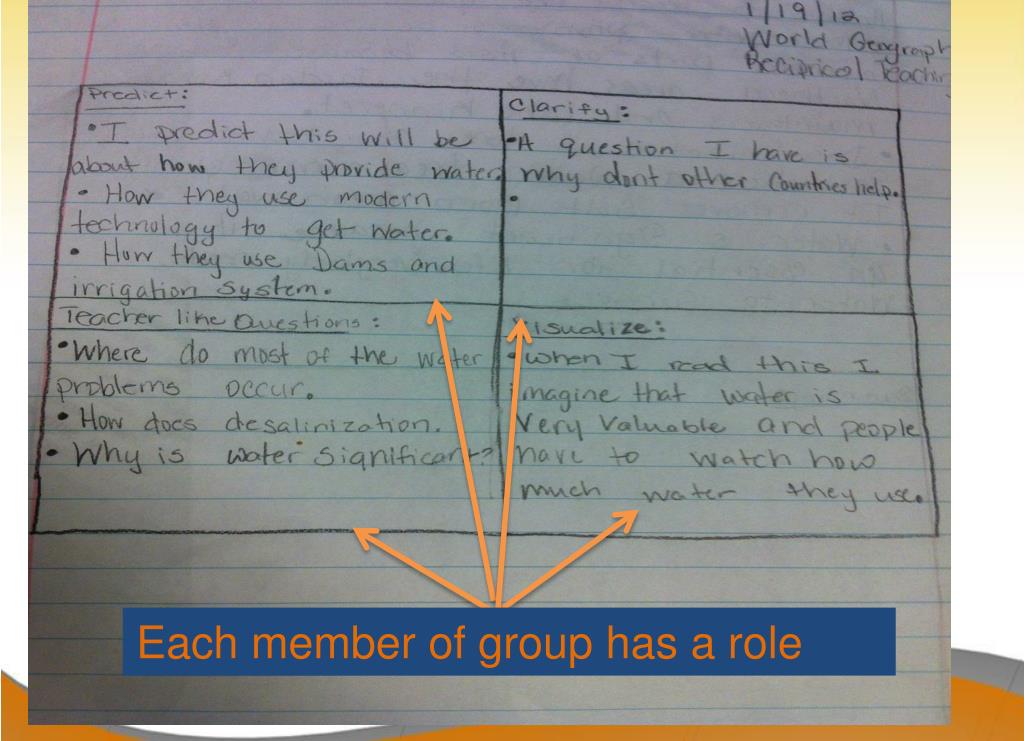 1/19/12
World Geograph
Reciprical Teachin
Predict:
• I predict this will be
about how they provide water.
• How they use modern
technology to get water.
• How they use Dams and
irrigation system.
Clarify:
• A question I have is
why dont other Countries help.
•
Teacher like Questions:
• Where do most of the water
problems occur.
• How does desalinization.
• Why is water significant?
Visualize:
• When I read this I
imagine that water is
Very Valuable and people
have to watch how
much water they use.
Each member of group has a role